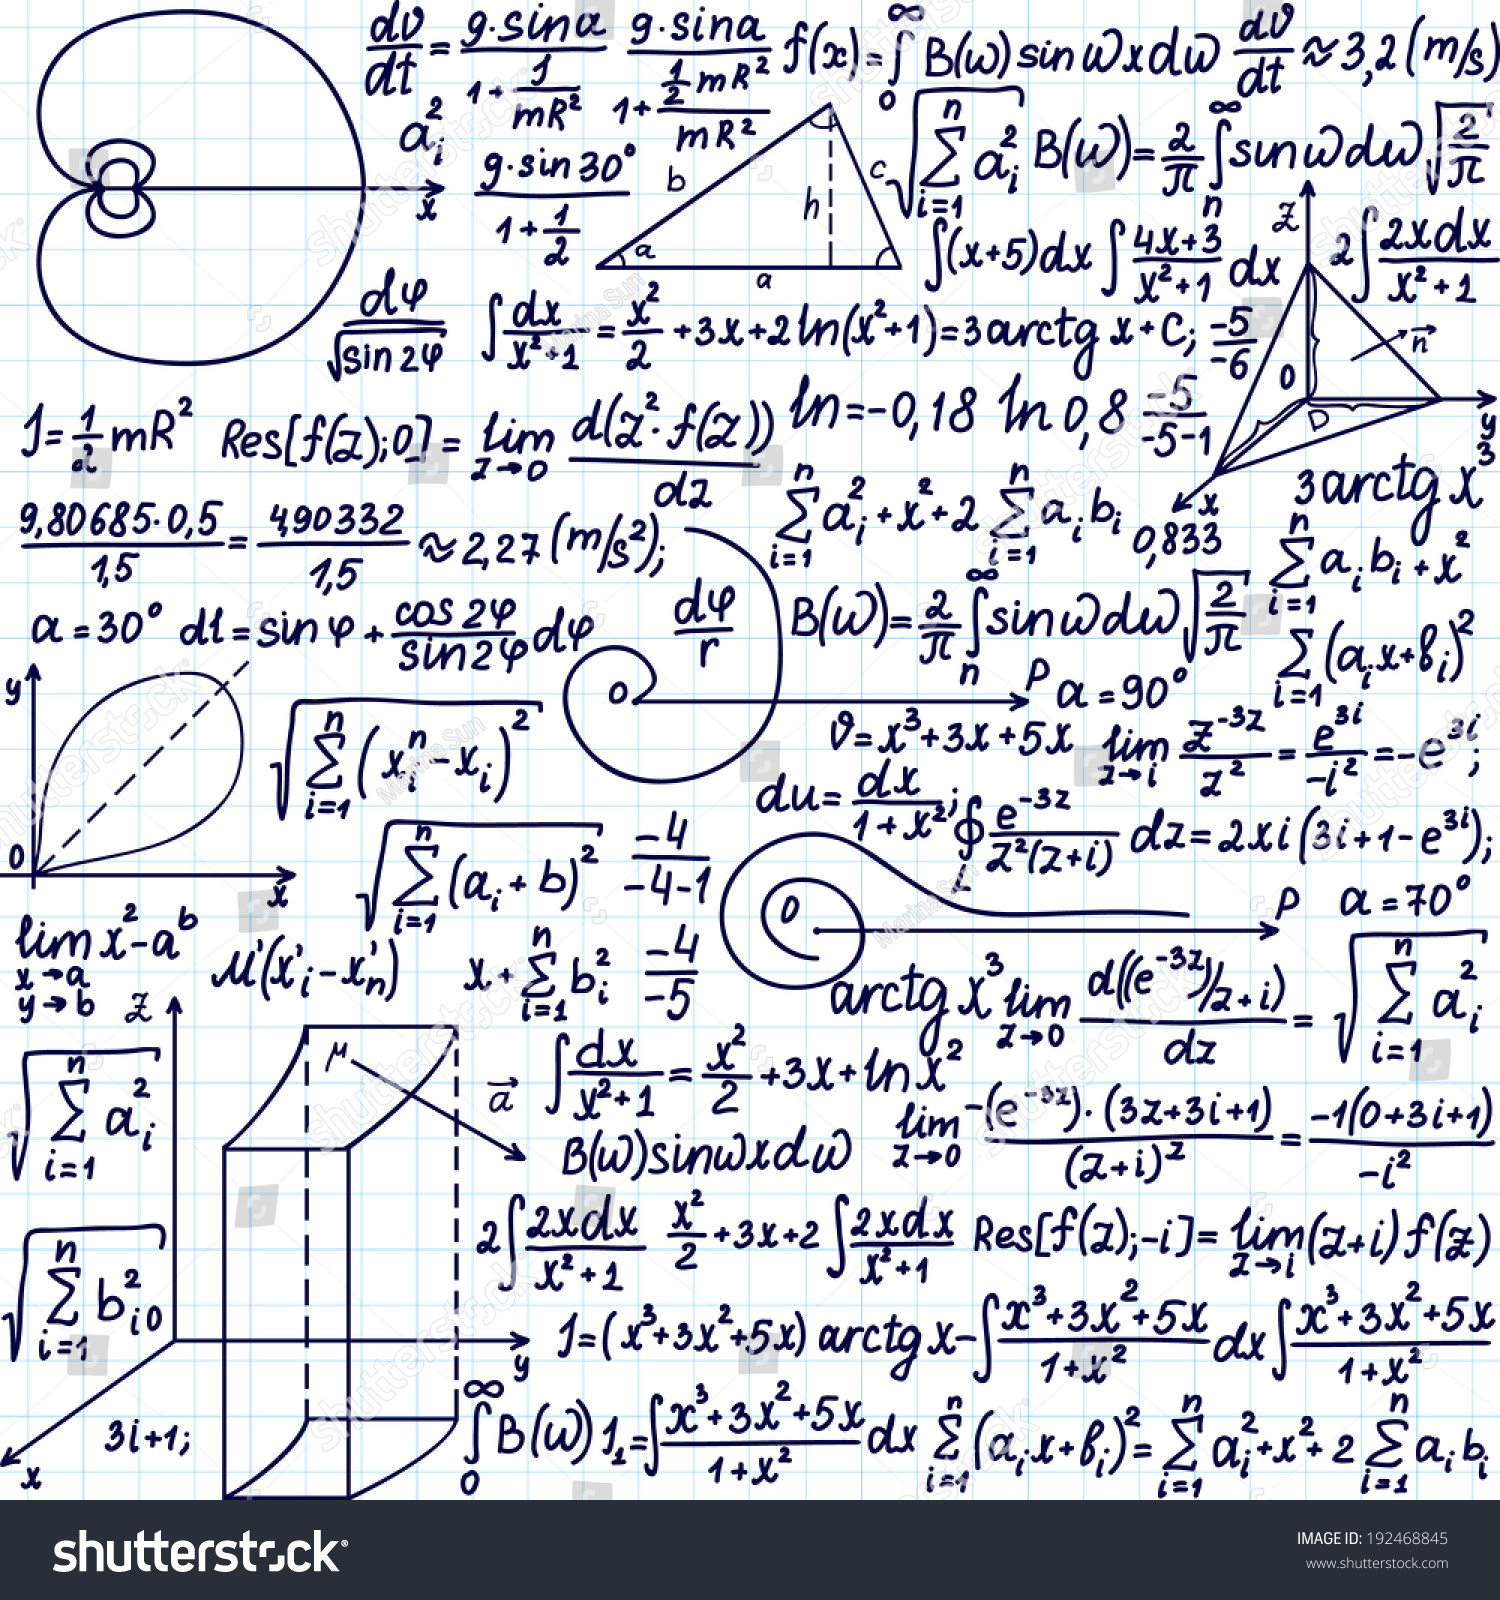 dv/dt = g·sinα/(1+1/mR²) g·sinα/(1+(1/2 mR²)/mR²) f(x)=∫₀^∞ B(ω)sinωxdω dv/dt ≈3,2(m/s)
a_i² g·sin30°/(1+1/2) √(∑_{i=1}^n a_i²) B(ω)=2/π ∫_n^∞ sinωdω √(2/π)
x b h c a a
∫(x+5)dx ∫(4x+3)/(x²+1) dx Z 2∫2xdx/(x²+1)
dφ/√sin2φ ∫dx/(x²+1) = x²/2 +3x+2ln(x²+1)=3arctg x+C; -5/-6 0 D n⃗ y x
J=1/2 mR² Res[f(z);0]= lim_{z→0} d(z²·f(z))/dz ln=-0,18 ln0,8 -5/(-5-1)
9,80685·0,5/1,5 = 4,90332/1,5 ≈2,27(m/s²); ∑_{i=1}^n a_i²+x²+2∑_{i=1}^n a_i b_i 0,833 3arctg x³
∑_{i=1}^n a_i b_i+x²
a=30° dl=sinφ+cos2φ/sin2φ dφ dφ/r B(ω)=2/π ∫_n^∞ sinωdω √(2/π) ∑_{i=1}(a_i x+b_i)²
y 0 x O P a=90°
√(∑_{i=1}^n (x_i^n-x_i)²) v=x³+3x+5x lim_{z→i} z^{-3z}/z² = e^{3i}/-i² =-e^{3i};
du=dx/(1+x²); ∮_L e^{-3z}/(z²(z+i)) dz=2xi(3i+1-e^{3i});
√(∑_{i=1}^n (a_i+b)²) -4/(-4-1) 0 P a=70°
lim_{x→a y→b} x²-a^b M'(x'_i-x'_n) x+∑_{i=1}^n b_i² -4/-5
arctg x³ lim_{z→0} d((e^{-3z})/z+i)/dz = √(∑_{i=1}^n a_i²)
Z M a⃗ y x
√(∑_{i=1}^n a_i²) ∫dx/(x²+1) = x²/2 +3x+ln x²
B(ω)sinωxdω lim_{z→0} -(e^{-3z})·(3z+3i+1)/(z+i)² = -1(0+3i+1)/-i²
√(∑_{i=1}^n b_{i0}²) 2∫2xdx/(x²+1) x²/2 +3x+2∫2xdx/(x²+1) Res[f(z);-i]= lim_{z→i}(z+i)f(z)
J=(x³+3x²+5x) arctg x-∫(x³+3x²+5x)/(1+x²) dx ∫(x³+3x²+5x)/(1+x²)
3i+1; ∫₀^∞ B(ω) J₁=∫(x³+3x²+5x)/(1+x²) dx ∑_{i=1}^n (a_i x+b_i)²= ∑_{i=1}^n a_i²+x²+2∑_{i=1}^n a_i b_i
shutterstock
IMAGE ID: 192468845
www.shutterstock.com